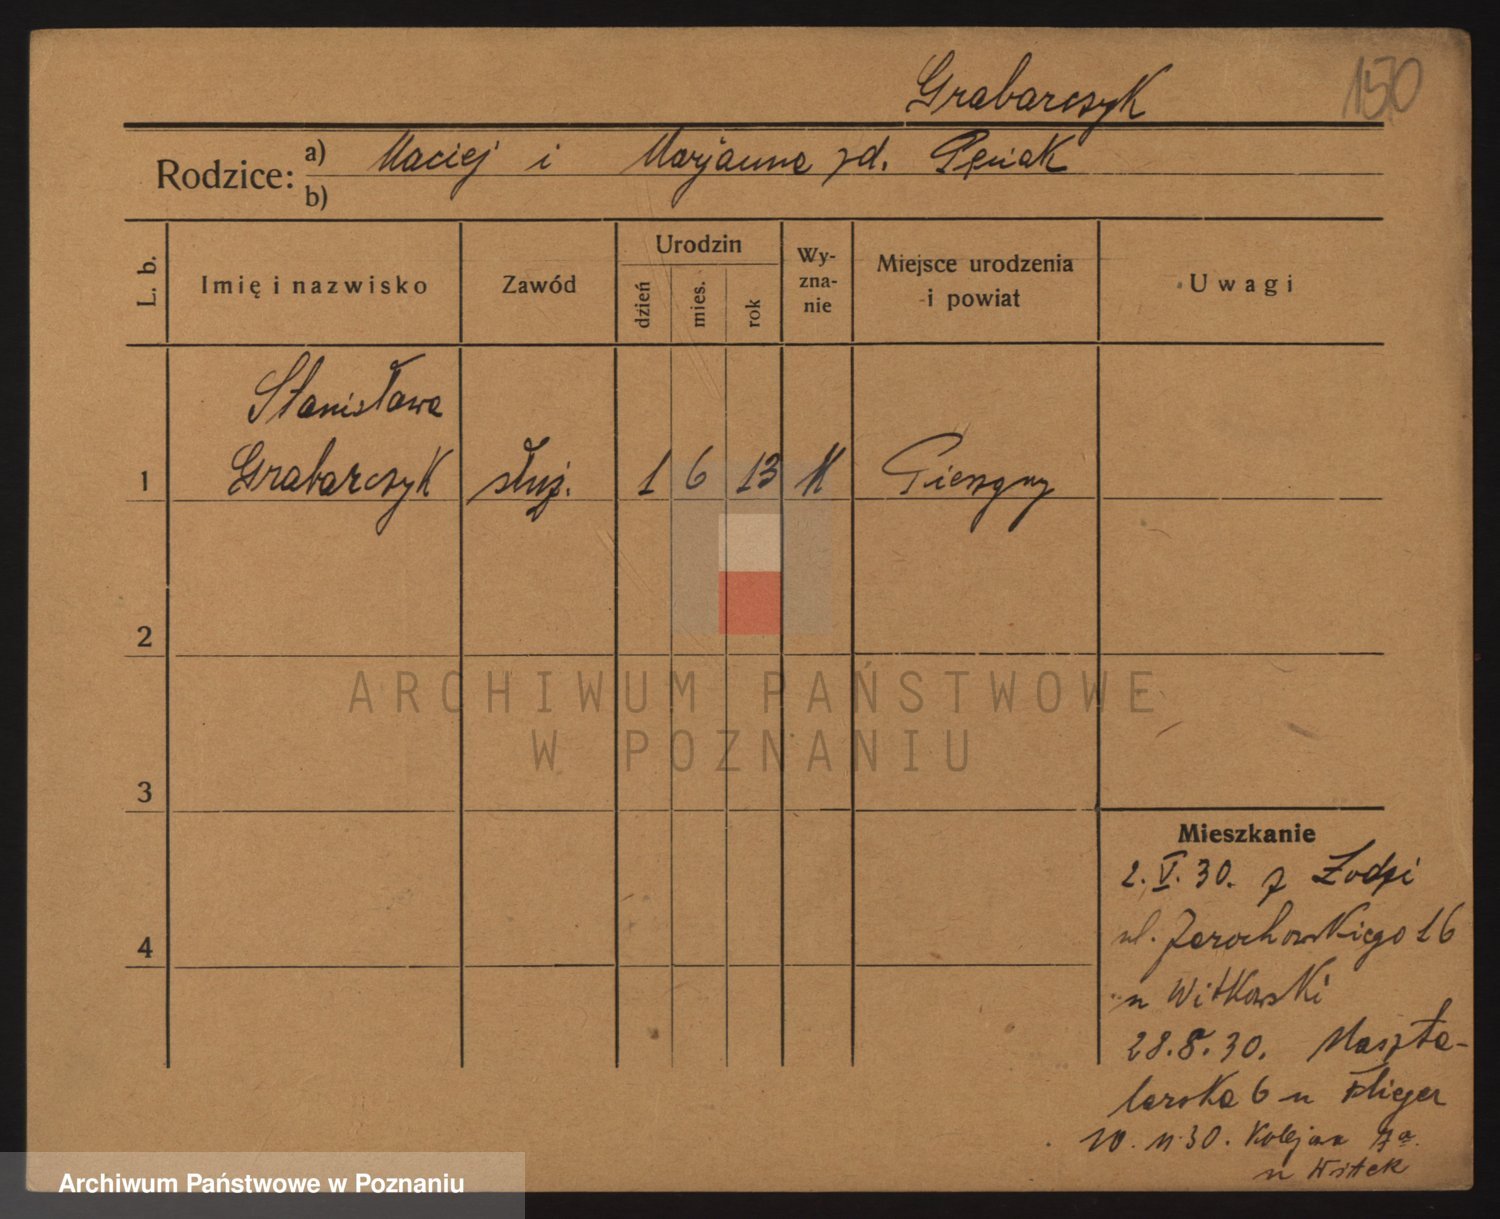 Grabarczyk
150
Rodzice: a) Maciej i Marjanna zd. Pęsiak
b)
L. b.
Imię i nazwisko
Zawód
Urodzin
dzień
mies.
rok
Wy-
zna-
nie
Miejsce urodzenia
i powiat
Uwagi
Stanisława
1 Grabarczyk służ. 1 6 13 K
2
3
4
Mieszkanie
2.V.30. z Łodzi
ul. Jarochowskiego 16
u Witkowski
28.8.30. Maszta-
larska 6 u Flieger
10.11.30. Kolejowa 7a.
u Witek
ARCHIWUM PAŃSTWOWE
W POZNANIU
Archiwum Państwowe w Poznaniu